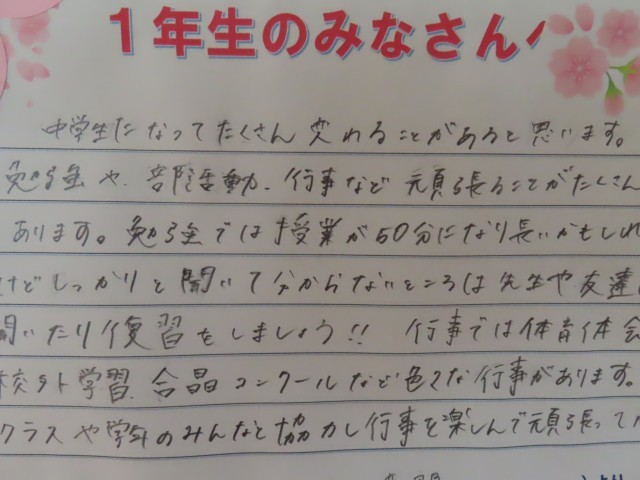 1年生のみなさんへ
中学生になってたくさん変わることがあると思います。
勉強や、部活動、行事など頑張ることがたくさん
あります。勉強では授業が50分になり長いかもしれ
けどしっかりと聞いて分からないところは先生や友達に
聞いたり復習をしましょう!! 行事では体育体会
校外学習、合唱コンクールなど色々な行事があります。
クラスや学年のみんなと協力し行事を楽しんで頑張って